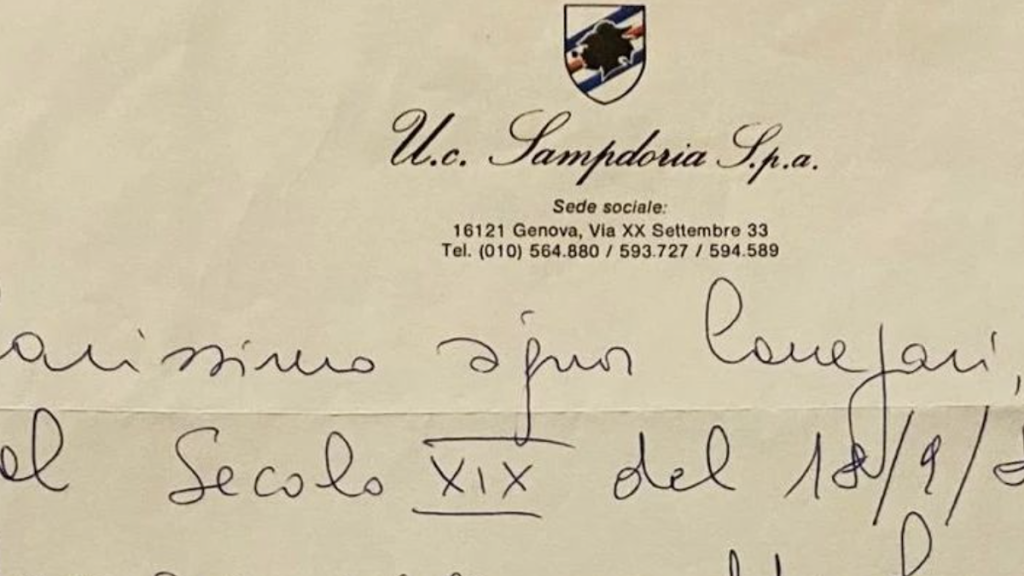 U.c. Sampdoria S.p.a.
Sede sociale:
16121 Genova, Via XX Settembre 33
Tel. (010) 564.880 / 593.727 / 594.589
arissimo signor
el Secolo XIX del 18/9/